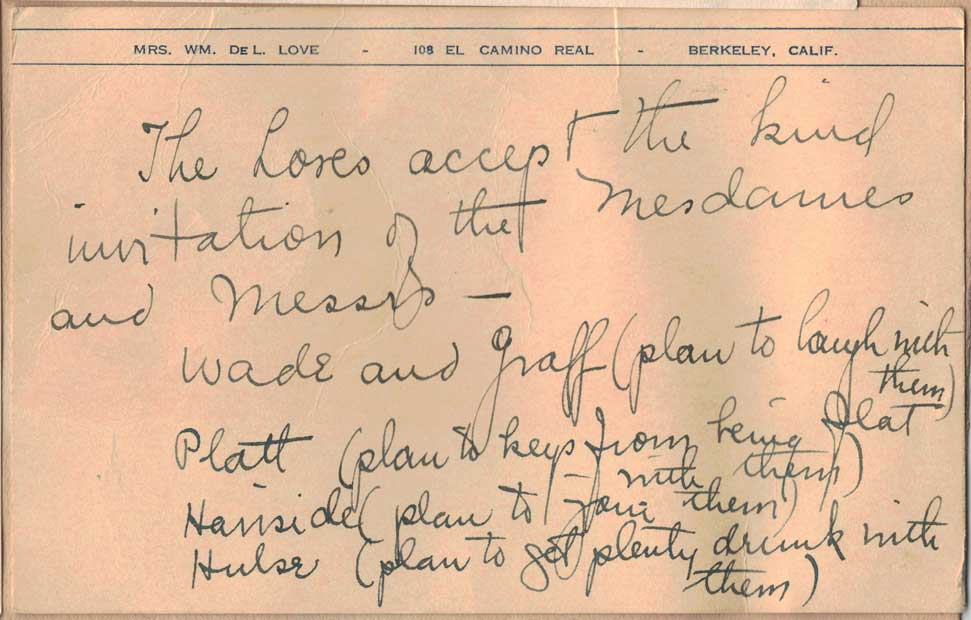 MRS. WM. DE L. LOVE - 108 EL CAMINO REAL - BERKELEY, CALIF.
The Loves accept the kind
invitation of the Mesdames
and Messrs —
Wade and Graff (plan to laugh with
them)
Platt (plan to keep from being flat
with them)
(plan to join them)
Hulse (plan to get plenty drunk with
them)